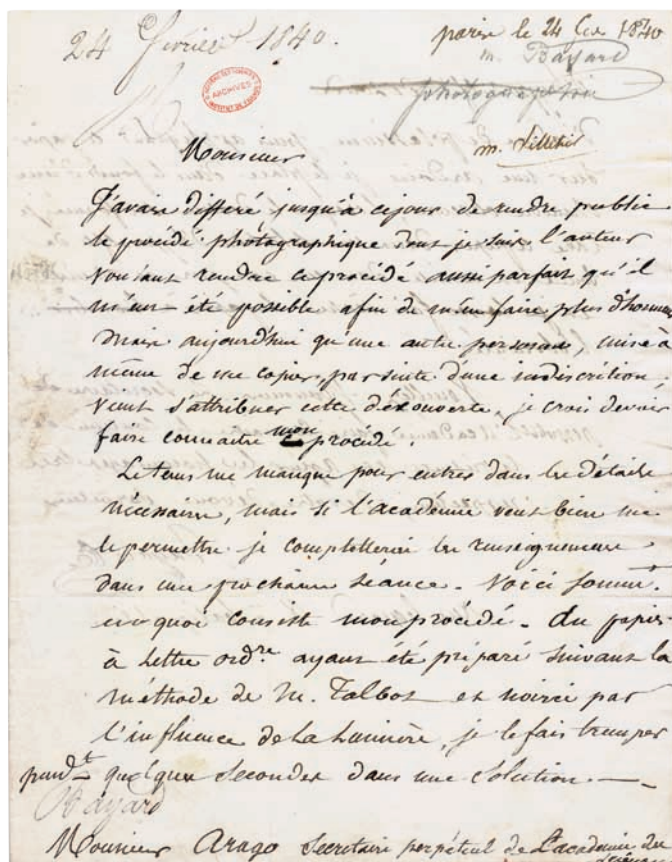 24 février 1840.
paris le 24 fev 1840
m. Bayard
photographie
ARCHIVES
Monsieur
J'avais différé jusqu'à ce jour de rendre public
le procédé photographique dont je suis l'auteur
voulant rendre ce procédé aussi parfait qu'il
m'eut été possible afin de m'en faire plus d'honneur
mais aujourd'hui qu'une autre personne, mise à
même de me copier, par suite d'une indiscrétion,
veut s'attribuer cette découverte, je crois devoir
faire connaitre mon procédé.
Le tems me manque pour entrer dans les détails
nécessaires, mais si l'académie veut bien me
le permettre je completterai les renseignemens
dans une prochaine séance. Voici sommt.
en quoi consiste mon procédé. du papier
à lettre ordre ayant été préparé suivant la
méthode de M. Talbot et noirci par
l'influence de la lumière, je le fais tremper
pendt quelques secondes dans une solution.
Bayard
Monsieur Arago Secrétaire perpétuel de L'académie des